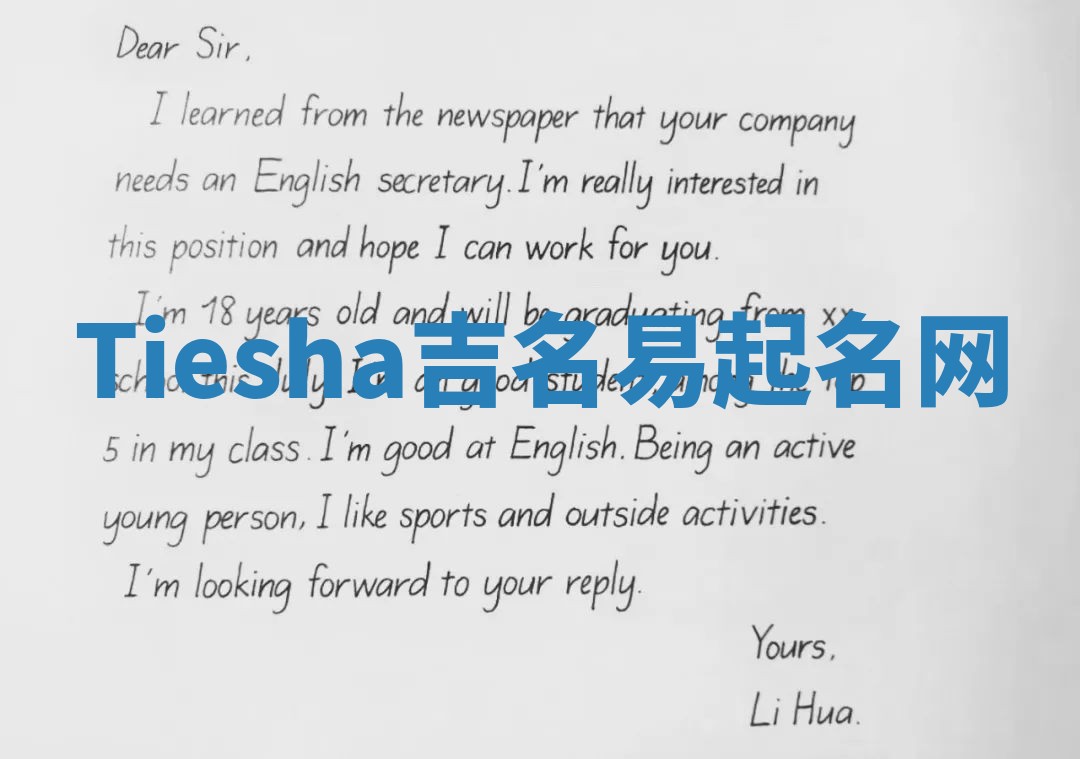 Dear Sir,
I learned from the newspaper that your company
needs an English secretary. I'm really interested in
this position and hope I can work for you.
I'm 18 years old and will be graduating from xx
Tiesha吉名易起名网
school this July. I'm a good student, among the top
5 in my class. I'm good at English. Being an active
young person, I like sports and outside activities.
I'm looking forward to your reply.
Yours,
Li Hua.